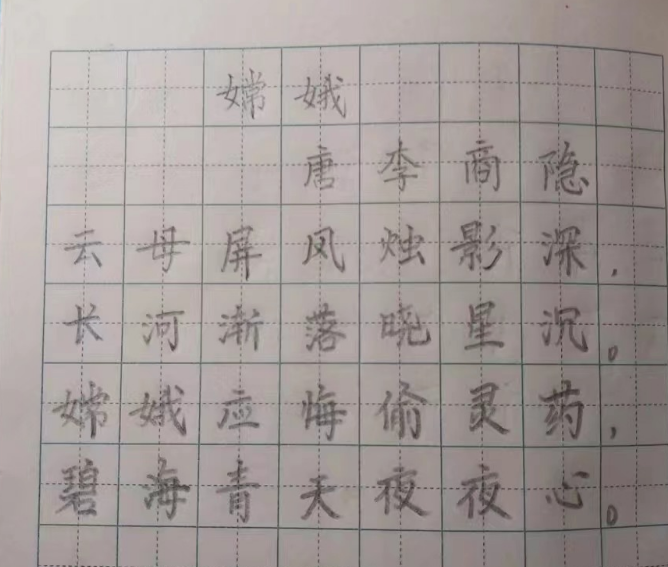 嫦娥
唐李商隐
云母屏风烛影深，
长河渐落晓星沉。
嫦娥应悔偷灵药，
碧海青天夜夜心。